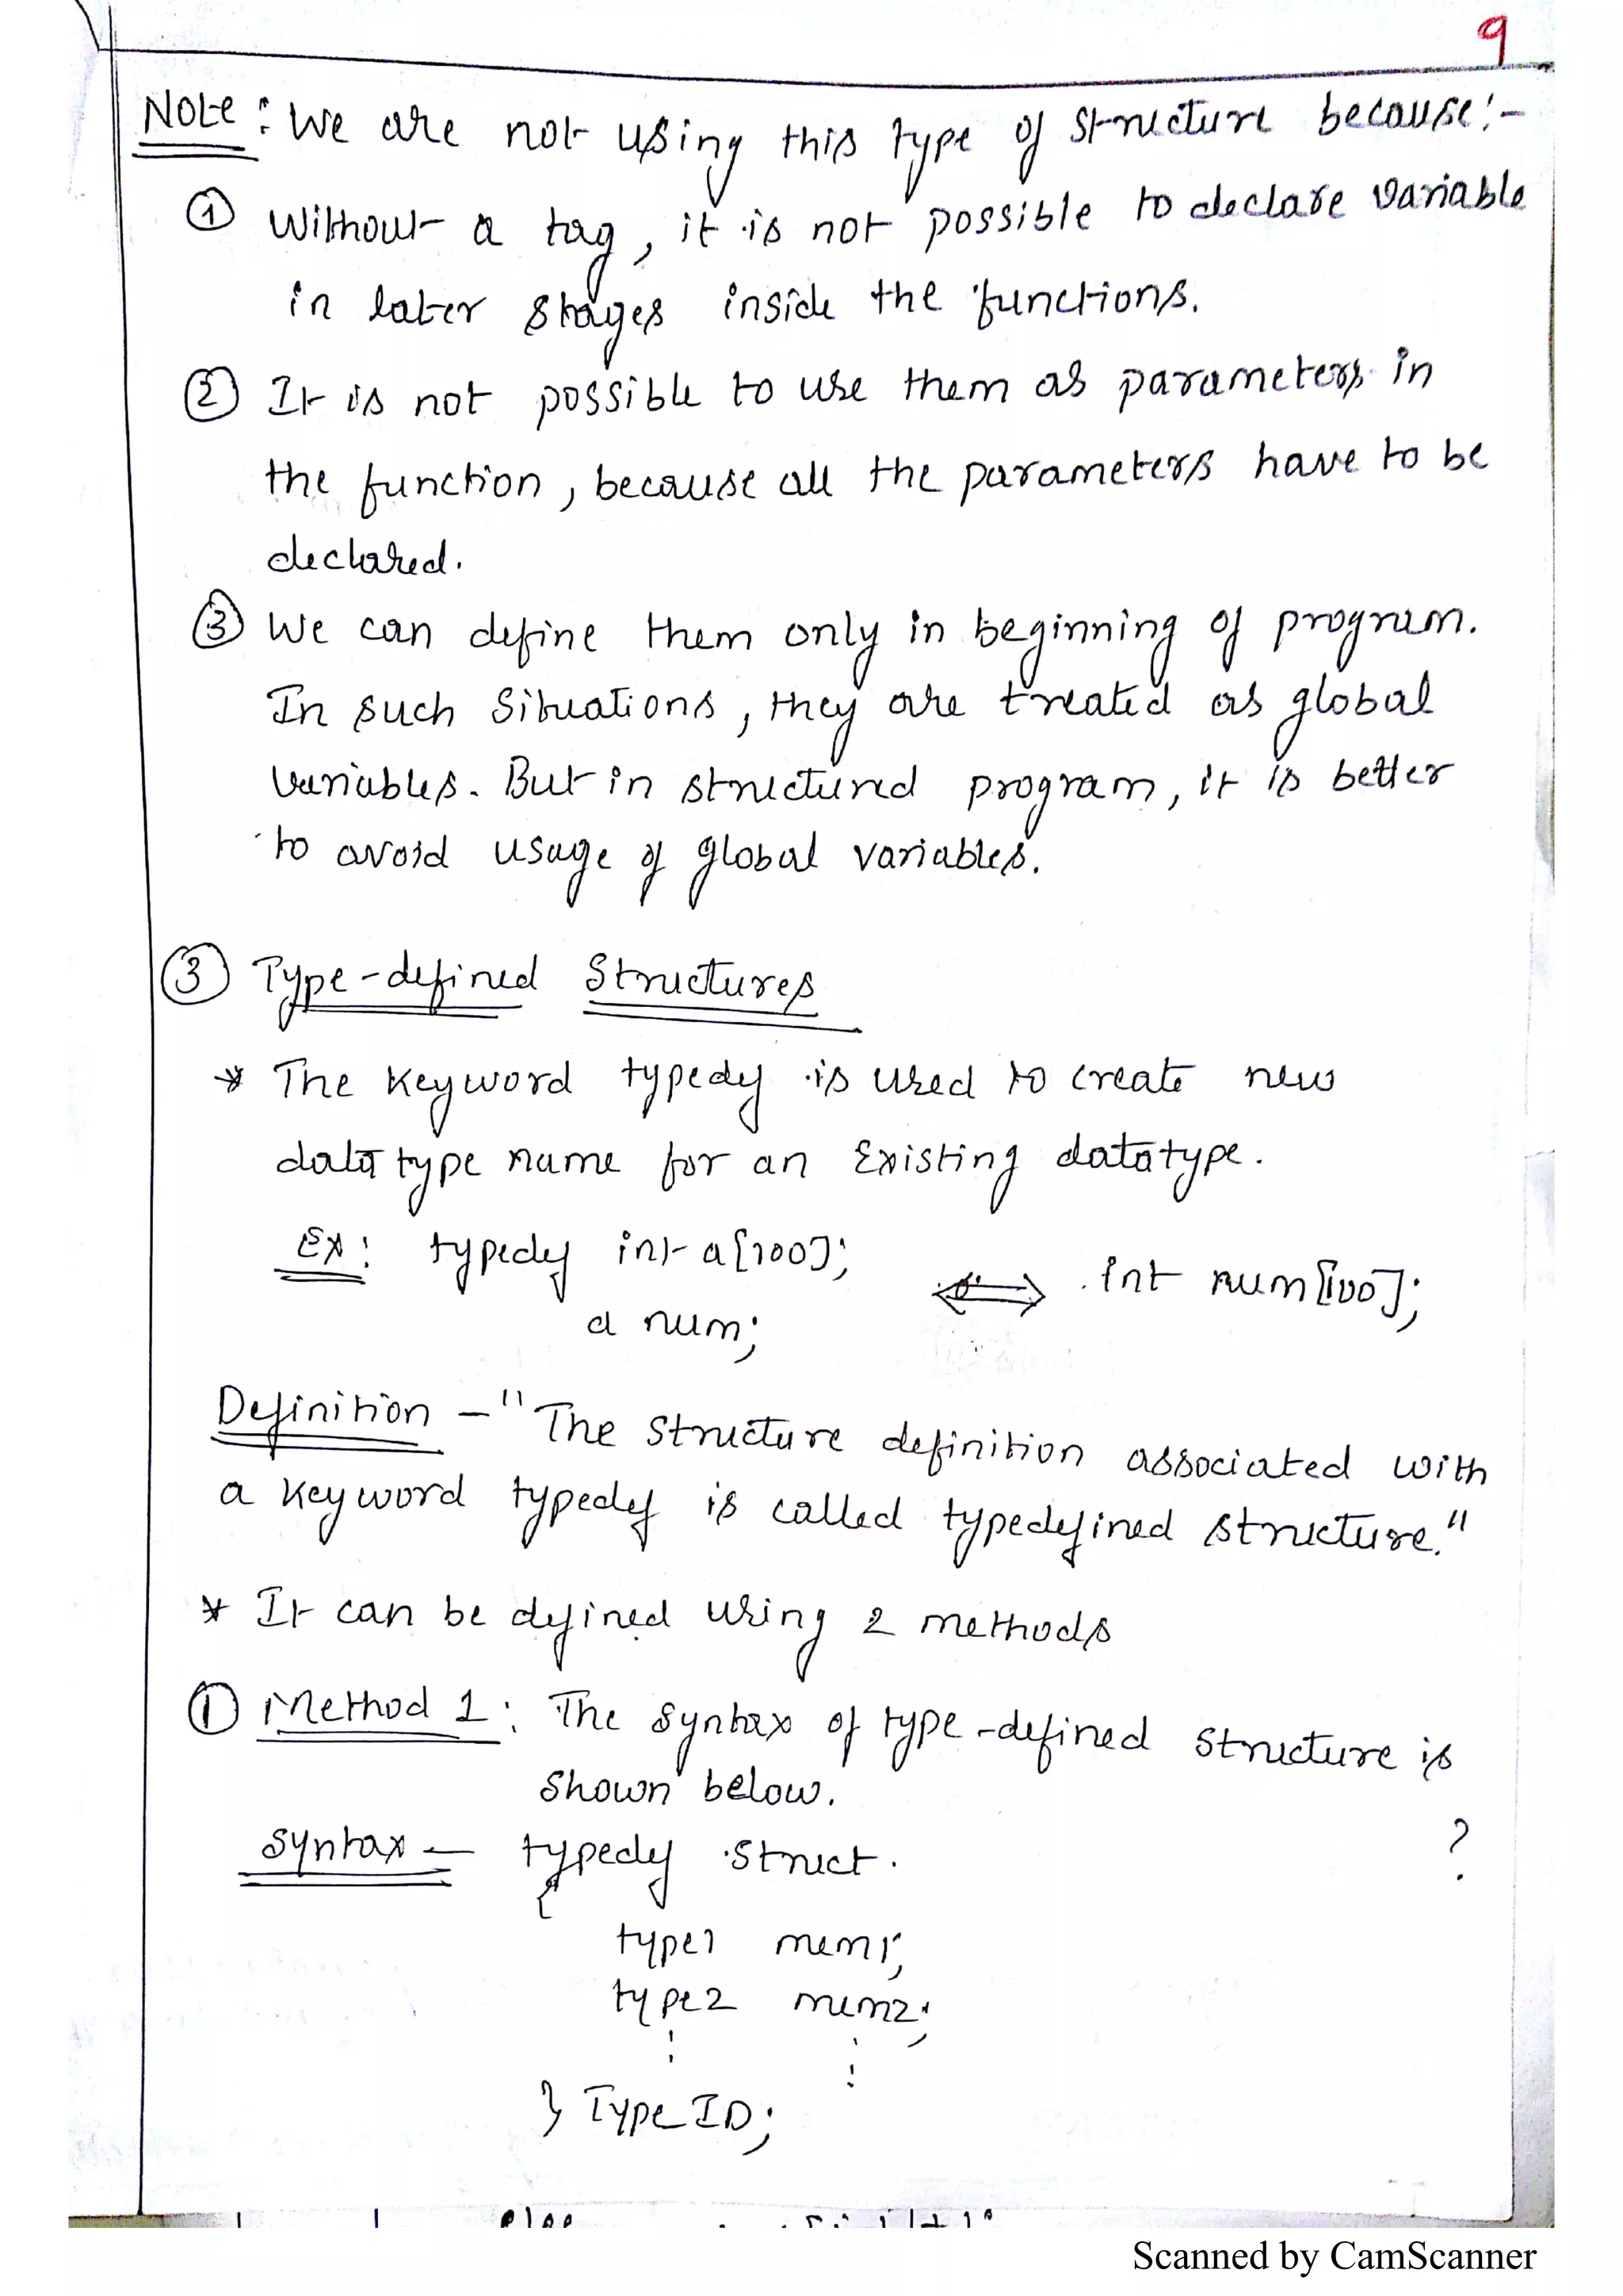 9
Note: We are not using this type of structure because:-
① Without a tag, it is not possible to declare variable
in later stages inside the functions.
② It is not possible to use them as parameters in
the function, because all the parameters have to be
declared.
③ We can define them only in beginning of program.
In such situations, they are treated as global
variables. But in structured program, it is better
to avoid usage of global variables.
③ Type-defined Structures
* The keyword typedef is used to create new
data type name for an Existing datatype.
Ex: typedef int a[100]; ⟺ int num[100];
a num;
Definition - "The structure definition associated with
a keyword typedef is called typedefined structure."
* It can be defined using 2 methods
① Method 1: The syntax of type-defined structure is
shown below.
Syntax - typedef struct. ?
{
type1 mem1;
type2 mem2;
: :
} Type ID;
Scanned by CamScanner